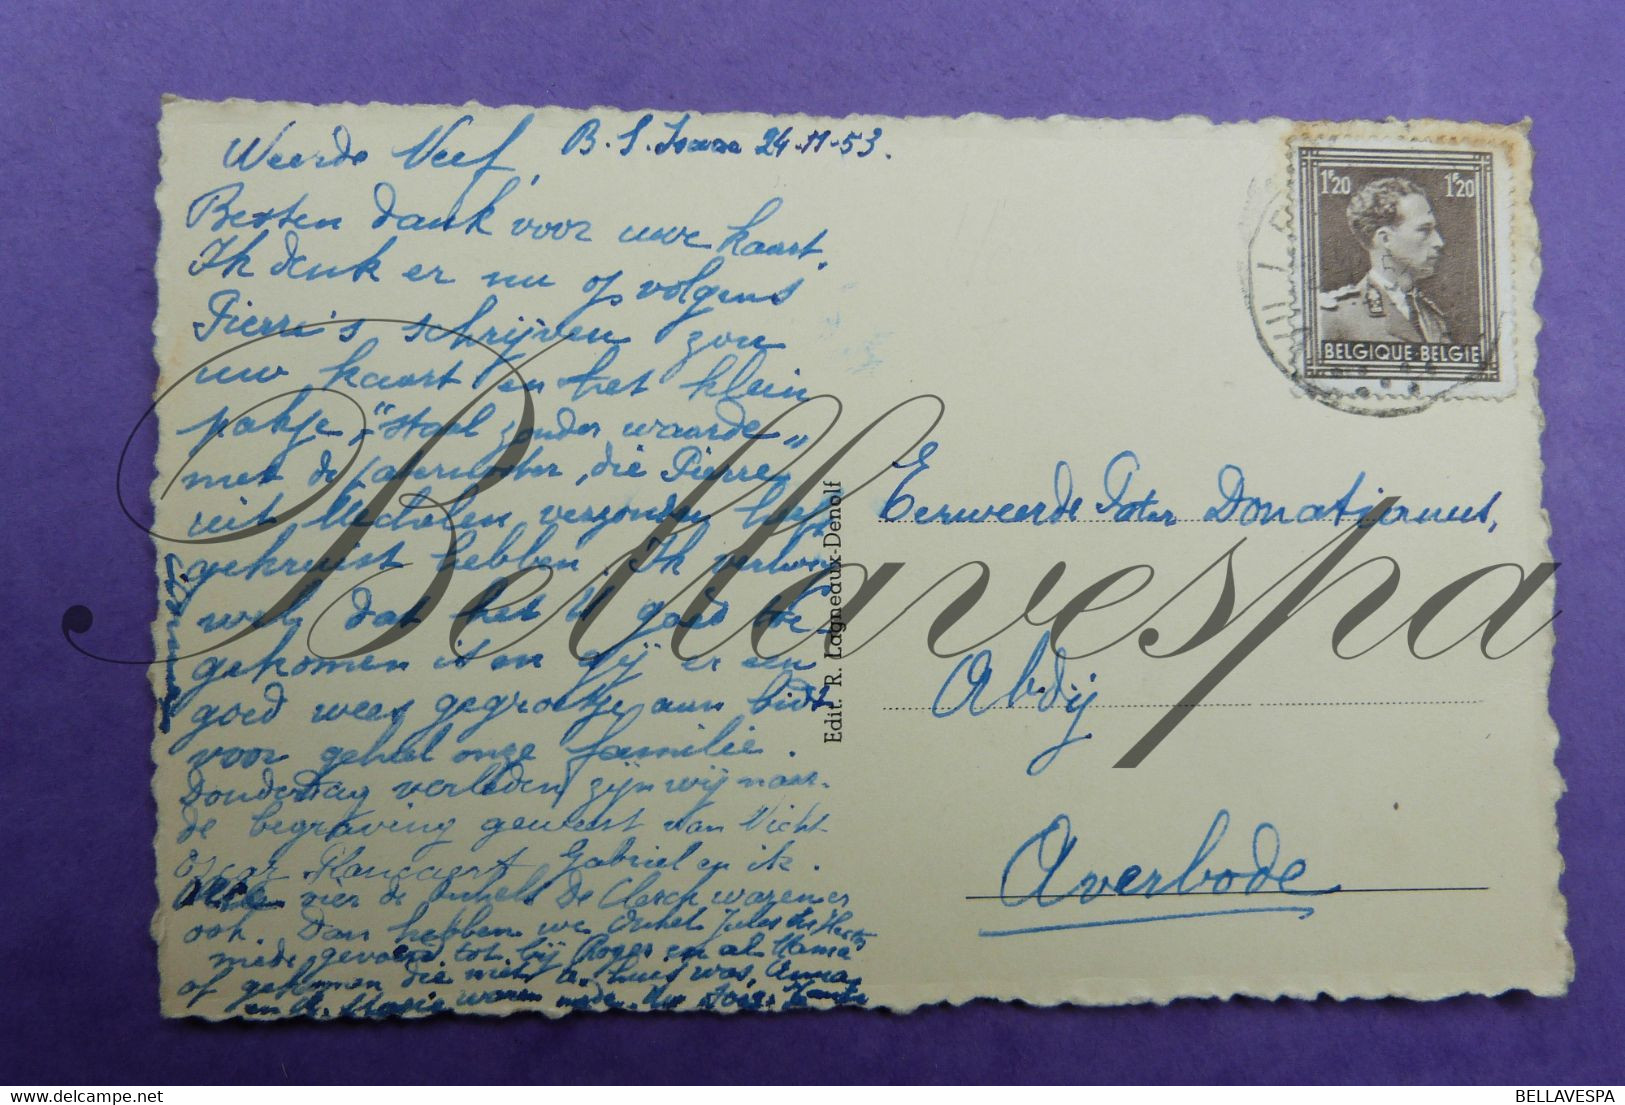 B. S. Isaac 24-11-53.
Weerde Neef,
Besten dank voor uwe kaart.
Ik denk er nu op volgens
Pierre's schrijven zou
uw kaart en het klein
pakje "staal zonder waarde"
met de paternoster, die Pierre
uit Mechelen verzonden heeft
gekruist hebben. Ik verhoop
wel dat het U goed toe-
gekomen is en gij er een
goed wees gegroetje aan bidt
voor geheel onze familie.
Donderdag verleden zijn wij naar
de begraving geweest van Nicht
Gabriel en ik.
vier de onkels De Clerck waren er
ook. Dan hebben we Onkel Jules
mede gevoerd tot bij Roger en al Mama
of gekomen die niet t' huis was, Anna
en waren mede.
1F20 1F20
BELGIQUE-BELGIE
Eerweerde Pater Donatianus,
Abdij
Averbode
Edit. R. Lagneaux-Denolf
Bellavespa
BELLAVESPA